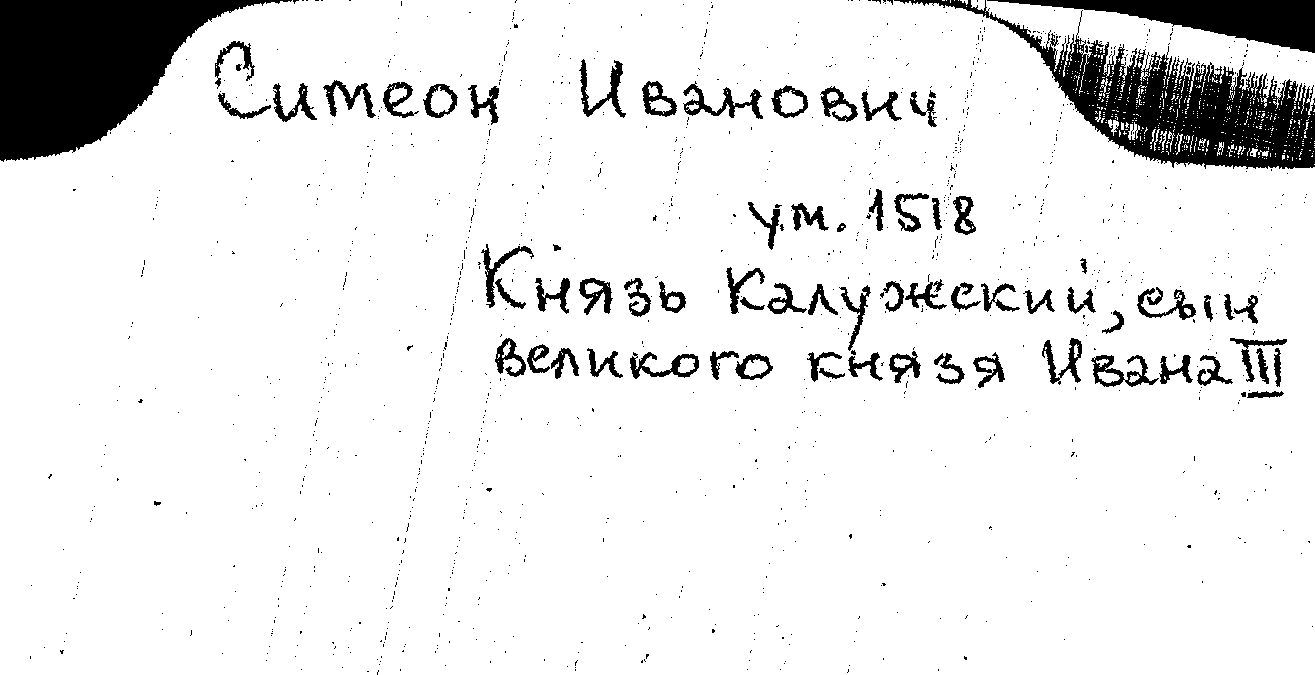 Симеон Иванович
ум. 1518
Князь Калужский, сын
великого князя Ивана III